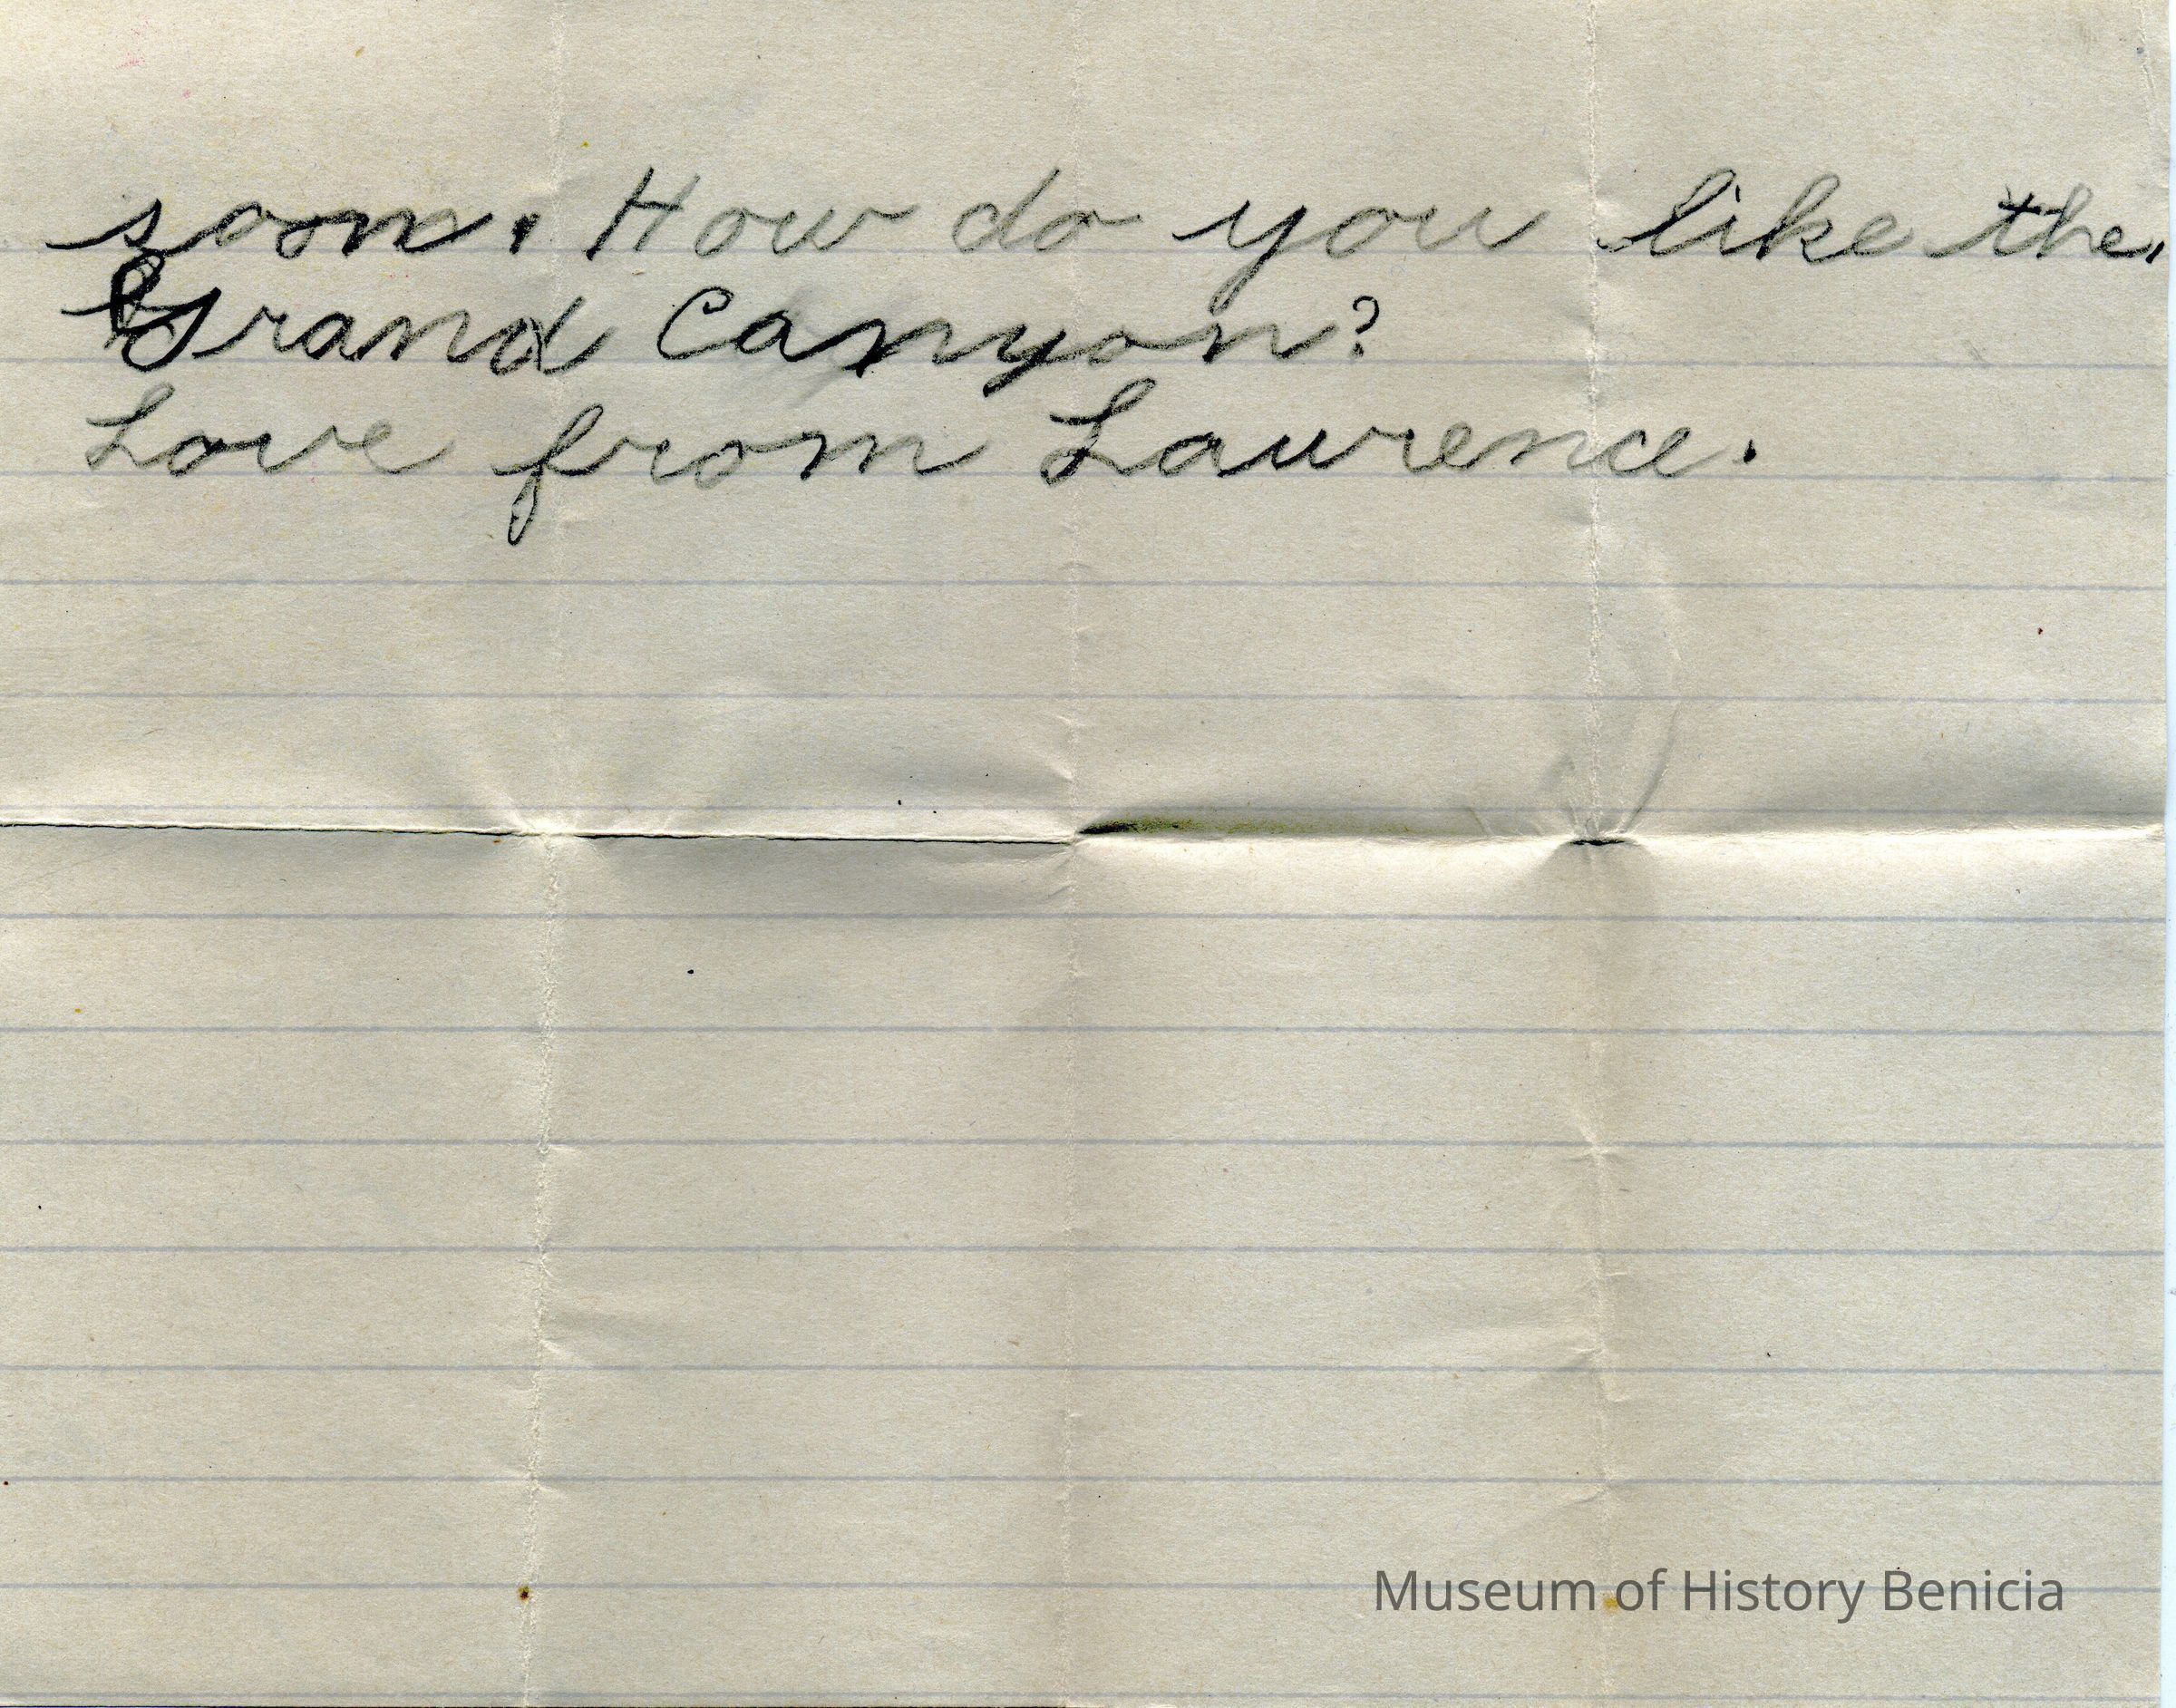 soon. How do you like the.
Grand Canyon?
Love from Laurence.
Museum of History Benicia